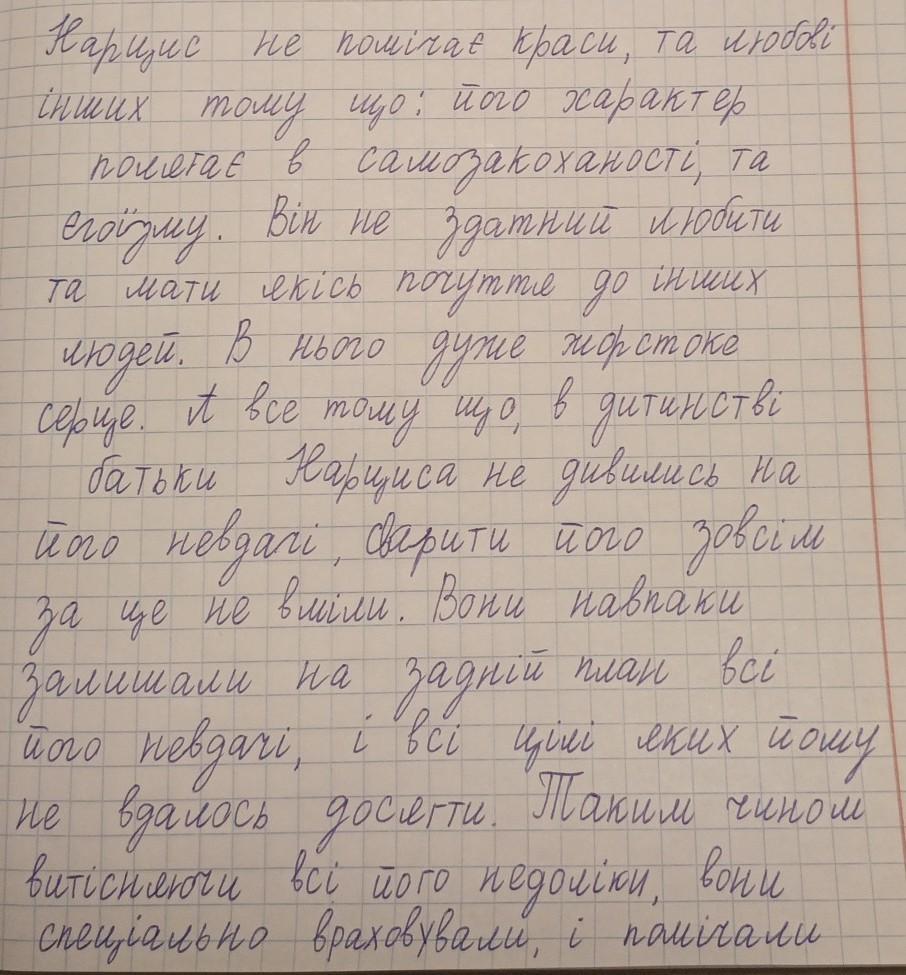 Нарцис не помічає краси, та любові
інших тому що: його характер
полягає в самозакоханості, та
егоїзму. Він не здатний любити
та мати якісь почуття до інших
людей. В нього дуже жорстоке
серце. А все тому що, в дитинстві
батьки Нарциса не дивились на
його невдачі, сварити його зовсім
за це не вміли. Вони навпаки
залишали на задній план всі
його невдачі, і всі цілі яких йому
не вдалось досягти. Таким чином
витісняючи всі його недоліки, вони
спеціально враховували, і помічали